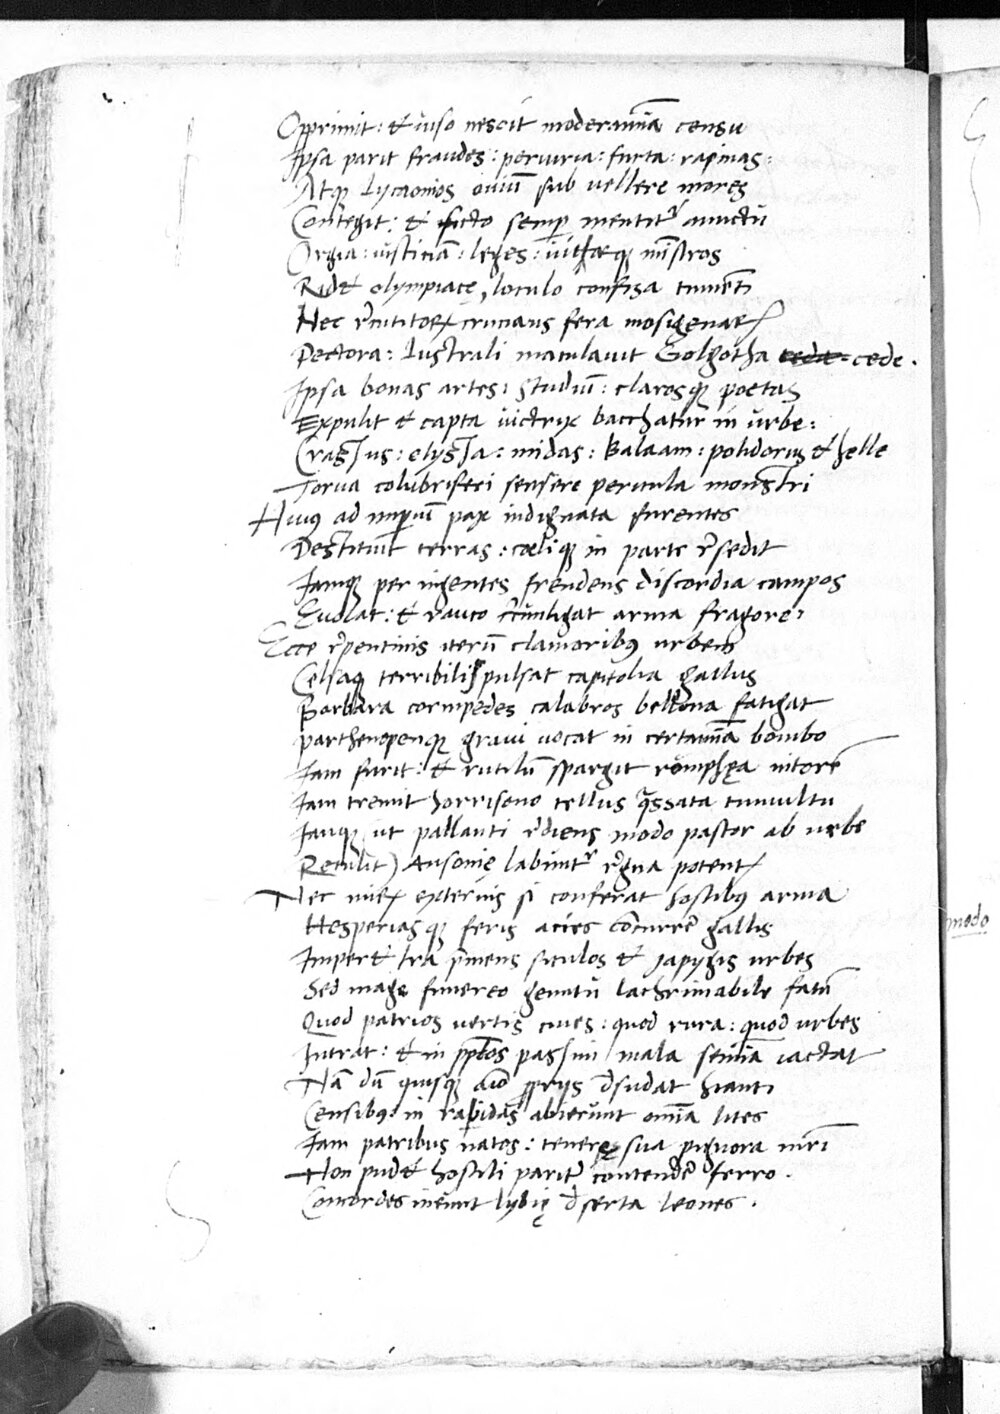 Opprimit: & iuso nescit moderamīa censu
Ipsa parit fraudes: periuria: furta: rapinas:
Atqꝫ Lycaonios ouiū sub vellere mores
Contegit: & ficto semꝑ mentitʳ amictū
Orgia: iusticiā: leges: mīstros
Ridet olympiacę, loculo confisa tumēti
Nec crucians fera mosigenaꝝ
Pectora: lustrali maculauit Golgotha cede.
Ipsa bonas artes: studiū: clarosqꝫ poetas
Expulit & capta victrix bacchatur in vrbe:
Crassus: elyssa: midas: Balaam: polidorus & helle
Torua colubriferi sensere pericula monstri
Huiꝯ ad imꝑiū pax indignata furentes
Destituit terras: cœliqꝫ in parte r̄sedit
Iamqꝫ per ingentes frendens discordia campos
Euolat: & rauco arma fragore:
Ecce r̄pentinis iterū clamoribꝯ vrbem
Celsaqꝫ terribilis pulsat capitolia gallus
Barbara cornipedes calabros bellona fatigat
parthenopenqꝫ graui vocat in certamīa bombo
Iam furit: & rutilū spargit romphęa nitorē
Iam tremit horrisono tellus q̄ssata tumultu
Iamqꝫ ut pallanti r̄diens modo pastor ab urbe
Retulit) Ausonię labūntʳ r̄gna potentꝭ
Nec miꝝ externis si conferat hostibꝯ arma
Hesperiasqꝫ feris acies cōcurrē gallis
Imperet trā p̄mens siculos & japygis urbes
Sed magis funereo gemitū lachrimabile fatū
Quod patrios vertis ciues: quod rura: quod urbes
Intrat: & in pp̄los passim mala semīa iactat
Nā dū quisqꝫ aīo ꝓprijs d̄sudat hianti
Censibꝯ: in rapidas abierūnt omīa lites
Iam patribus natos: tenerę sua pignora mr̄i
Non pudet hostili paritʳ contendē ferro.
Concordes ineūnt lybię d̄serta leones.
modo